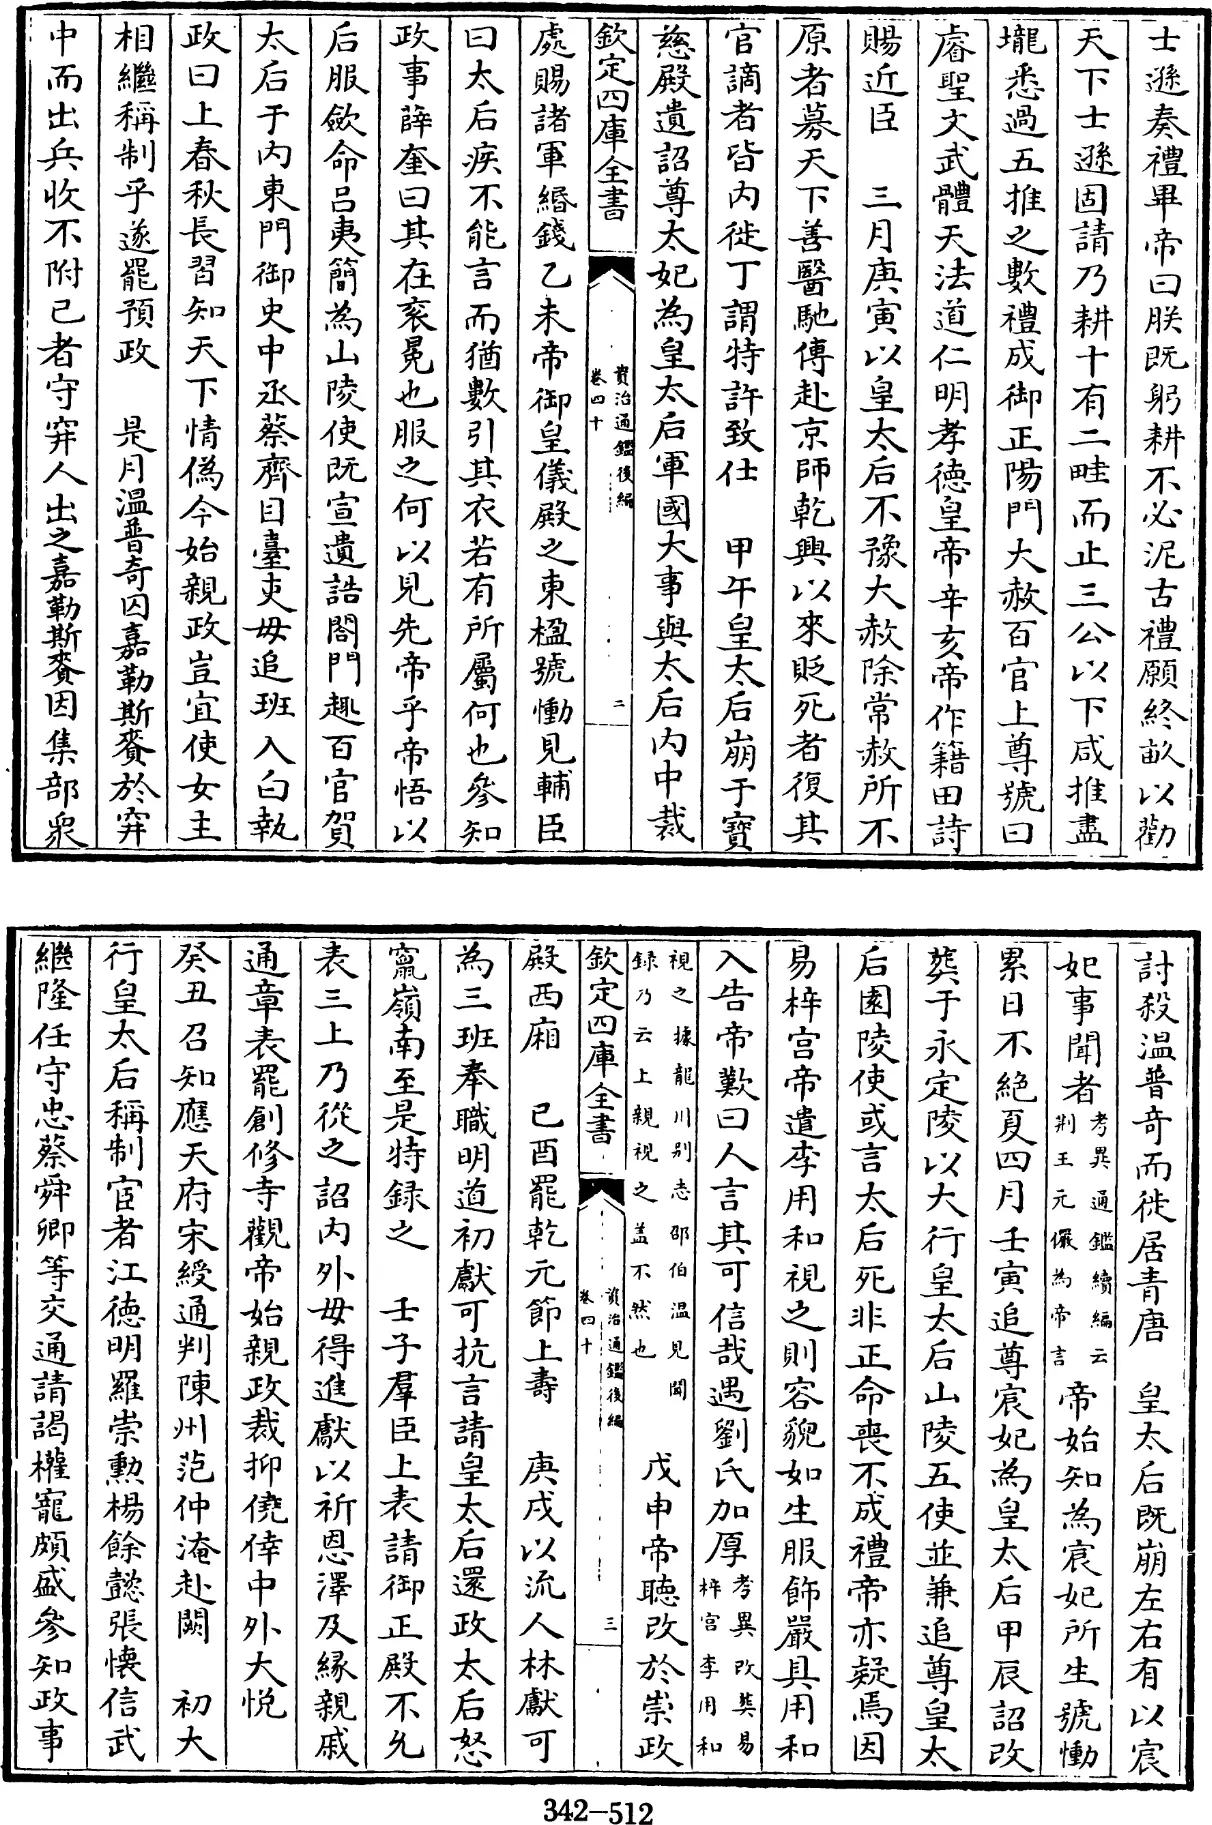 士遜奏禮畢帝曰朕既躬耕不必泥古禮願終畝以勸
天下士遜固請乃耕十有二畦而止三公以下咸推盡
壠悉過五推之數禮成御正陽門大赦百官上尊號曰
睿聖文武體天法道仁明孝德皇帝辛亥帝作籍田詩
賜近臣　三月庚寅以皇太后不豫大赦除常赦所不
原者募天下善醫馳傳赴京師乾興以來貶死者復其
官謫者皆内徙丁謂特許致仕　甲午皇太后崩于寶
慈殿遺詔尊太妃為皇太后軍國大事與太后内中裁
欽定四庫全書
資治通鑑後編
卷四十
二
處賜諸軍緡錢乙未帝御皇儀殿之東楹號慟見輔臣
曰太后疾不能言而猶數引其衣若有所屬何也參知
政事薛奎曰其在袞冕也服之何以見先帝乎帝悟以
后服斂命吕夷簡為山陵使既宣遺誥閤門趣百官賀
太后于内東門御史中丞蔡齊目臺吏毋追班入白執
政曰上春秋長習知天下情僞今始親政豈宜使女主
相繼稱制乎遂罷預政　是月溫普奇囚嘉勒斯賚於穽
中而出兵收不附已者守穽人出之嘉勒斯賚因集部衆
討殺溫普奇而徙居青唐　皇太后既崩左右有以宸
妃事聞者
考異通鑑續編云
荆王元儼為帝言
帝始知為宸妃所生號慟
累日不絕夏四月壬寅追尊宸妃為皇太后甲辰詔改
葬于永定陵以大行皇太后山陵五使並兼追尊皇太
后園陵使或言太后死非正命喪不成禮帝亦疑焉因
易梓宫帝遣李用和視之則容貌如生服飾嚴具用和
入告帝歎曰人言其可信哉遇劉氏加厚
考異改葬易
梓宫李用和
視之據龍川别志邵伯溫見聞
録乃云上親視之盖不然也
戊申帝聽政於崇政
欽定四庫全書
資治通鑑後編
卷四十
三
殿西廂　已酉罷乾元節上壽　庚戌以流人林獻可
為三班奉職明道初獻可抗言請皇太后還政太后怒
竄嶺南至是特録之　壬子羣臣上表請御正殿不允
表三上乃從之詔内外毋得進獻以祈恩澤及緣親戚
通章表罷創修寺觀帝始親政裁抑僥倖中外大悅
癸丑召知應天府宋綬通判陳州范仲淹赴闕　初大
行皇太后稱制宦者江德明羅崇勲楊餘懿張懐信武
繼隆任守忠蔡舜卿等交通請謁權寵頗盛參知政事
342-512